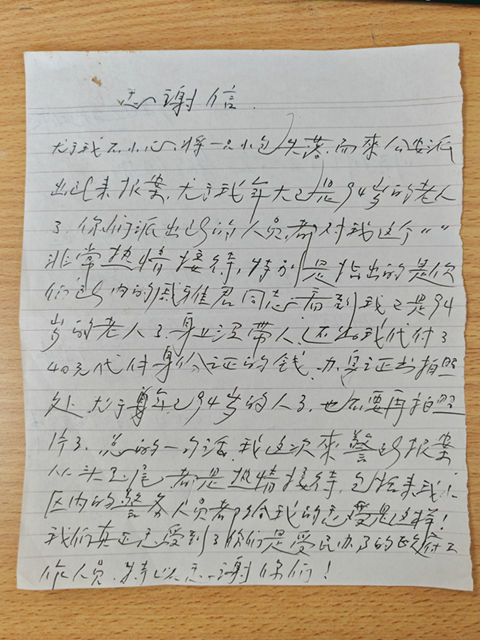 感谢信.
尤于我不小心,将一只小包失落,而来公安派
出所来报案,尤于我年大已是94岁的老人
了.你们派出所的人员,都对我这个""
非常热情接待,特别是指出的是你
们所内的 同志看到我已是94
岁的老人了.身上没带人,还为我代付了
40元代付身份证的钱.办身证出拍照
处尤于 年已94岁的人了.也不要再拍照
片了.总的一句话,我这次来警所报案
从头至尾都是热情接待,包括来我小
区内的警务人员都给我的感受是这样!
我们真正感受到了你们是爱民办事的政府工
作人员.特此感谢你们!